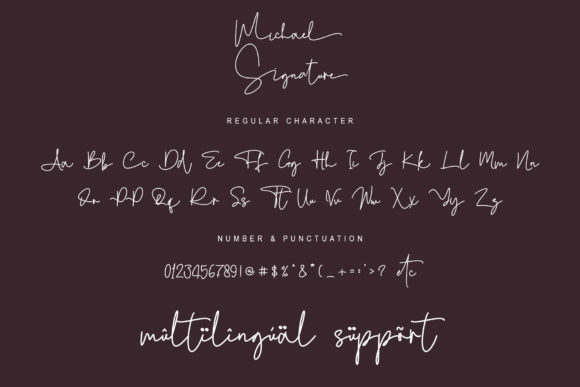 Michael
Signature
REGULAR CHARACTER
Aa Bb Cc Dd Ee Ff Gg Hh Ii Jj Kk Ll Mm Nn
Oo Pp Qq Rr Ss Tt Uu Vv Ww Xx Yy Zz
NUMBER & PUNCTUATION
0123456789!@#$%^&*(_+=:">? etc
mûltïlîngúäl süppõrt